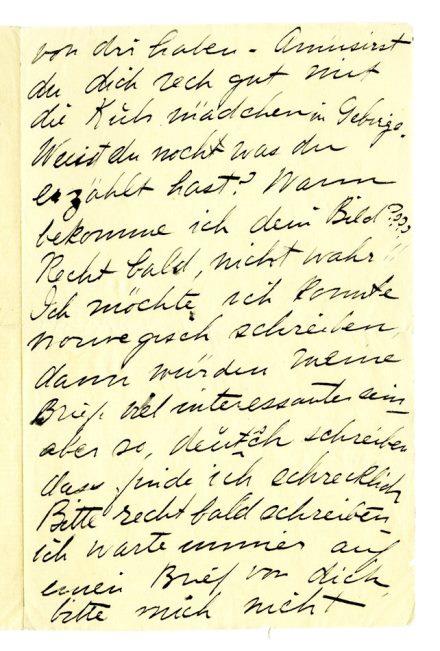 von dri haben - Amüsirst
du dich rech gut mit
die Kuhmädchen in Gebirge.
Weisst du nocht was du
erzählt hast? Wann
bekomme ich dein Bild????
Recht bald, nicht wahr!!
Ich möchte, ich konnte
norwegisch schreiben,
dann würden meine
Brief viel interessanter sein
aber so, deutsch schreiben
dass finde ich schrecklich
Bitte recht bald schreiben
ich warte immer auf
einen Brief von dich,
bitte mich nicht